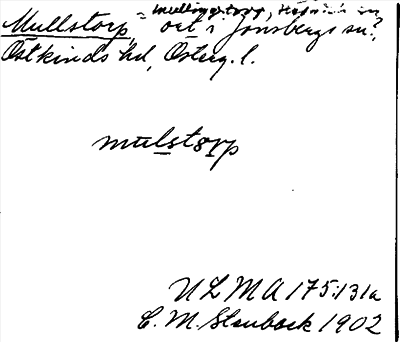 = Mullingstorp,
Mullstorp, ort i Jonsbergs sn?,
Östkinds hd, Österg. l.
mulstorp
ULMA 175:131a
C. M. Stenbock 1902